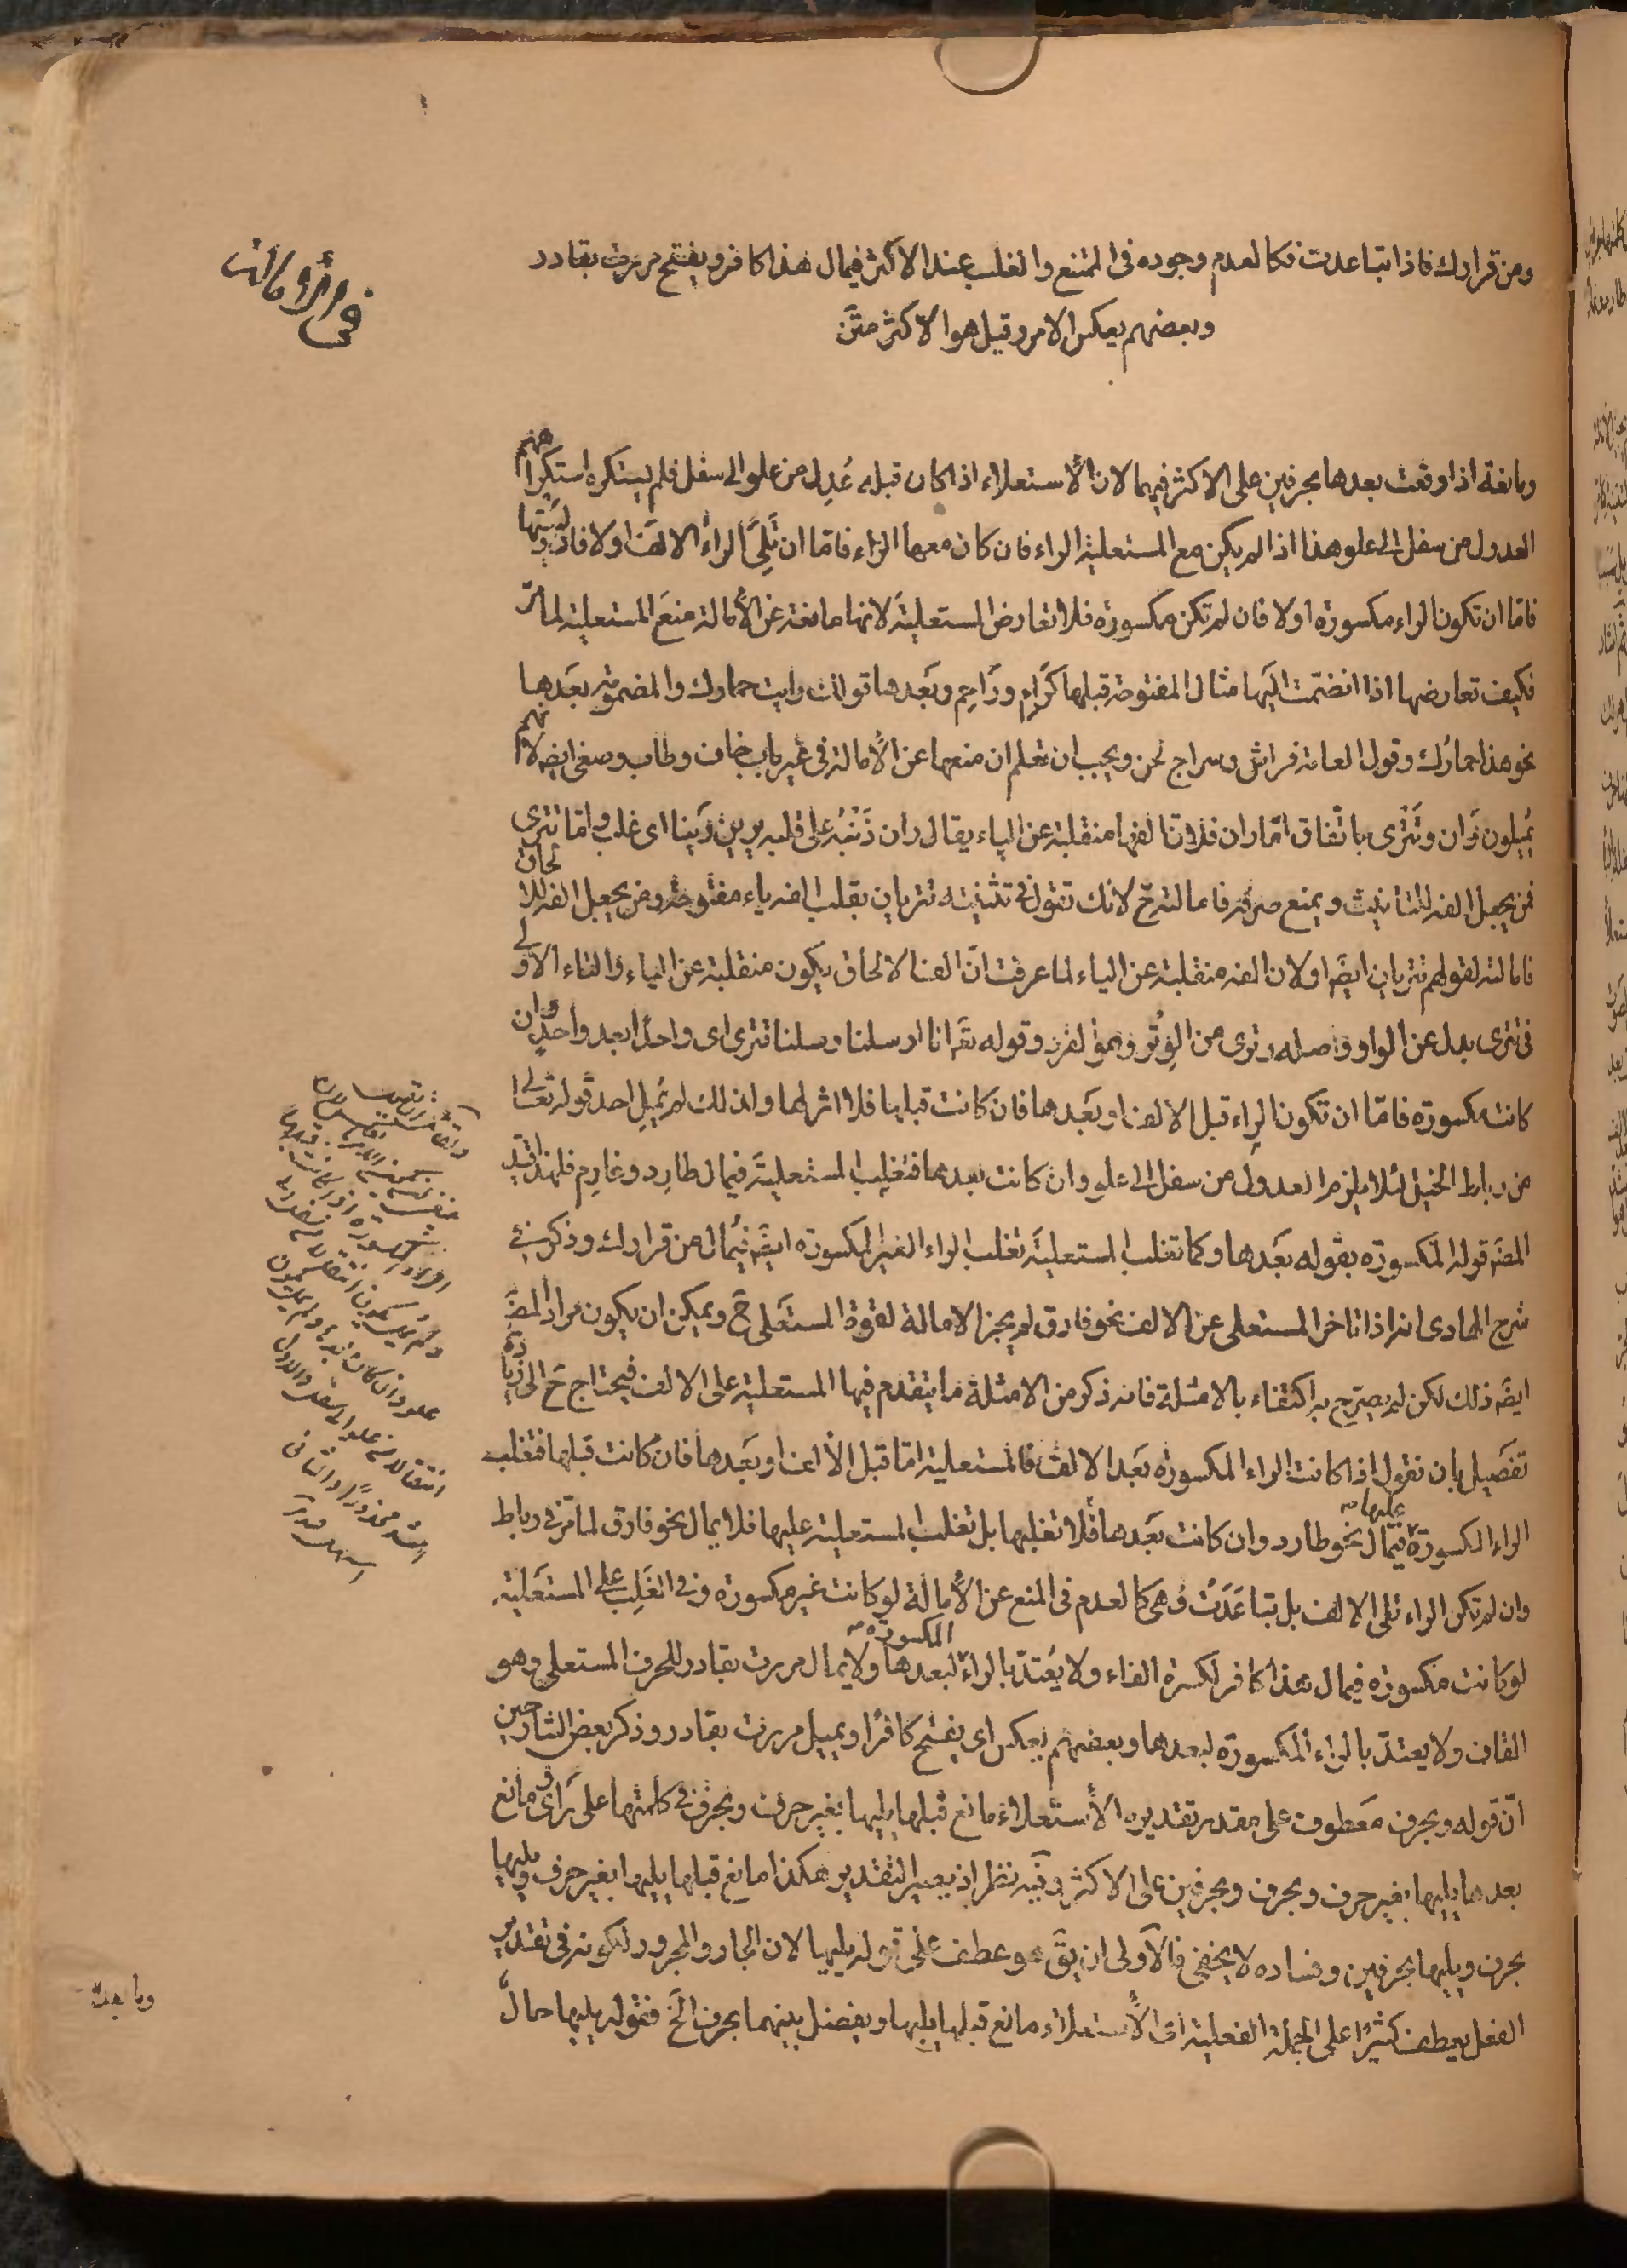 ومن قرارك فاذا تباعدت فكالعدم وجوده فى المنع والغلب عند الاكثر فيمال هذا كافر ويفتح مررت بقادر
وبعضهم يعكس الامر وقيل هو الاكثر متن
ومانعة اذا وقعت بعدها بحرفين على الاكثر فيهما لان الأستعلاء اذا كان قبله عُدِل من علو الى سفل فلم يستكره استكراههم
العدول من سفل الى علو هذا اذا لم يكن مع المستعلية الراء فان كان معها الراء فامّا ان تَلِىَ الراءُ الالفَ اولا فان وليتها
فامّا ان تكون الراء مكسورة اولا فان لم تكن مكسورة فلا تعارض المستعليةَ لانها مانعة عن الأمالة منعَ المستعلية لما مرّ
فكيف تعارضها اذا انضمّت اليَها مثال المفتوحة قبلها كَرَام ورَاحِم وبَعدها قولك رايت حمارك والمضمومة بعَدها
نحو هذا حمارُك وقول العامة فراش وسراج لحن ويجب ان تعلم ان منعها عن الأمالة فى غير باب خاف وطاب وصغى ايضه لانهم
يُميلون رَان وتَتْرى باتفاق امّا ران فلانّ الفها منقلبة عن الياء يقال ران ذَنْبُه على قلبه يرين رَينا اى غلب واما تترى
فمن يجعل الفه للتانيث ويمنع صرفه فامالته حّ لانك تقول فى تثنيته تتريان بقلب الفه ياء مفتوحة ومن يجعل الفه للالحاق
فامالته لقولهم تتريان ايضَه اولان الفه منقلبة عن الياء لما عرفت انّ الف الالحاق يكون منقلبة عن الياء والتاء الاولى
فى تترى بدل عن الواو واصله وترى من الوِتْر وهو الفرد وقوله تعَه انا ارسلنا رسلنا تترى اى واحدًا بعد واحدٍ وان
كانت مكسورة فامّا ان تكون الراء قبل الالف او بعَدها فان كانت قبلها فلا اثر لها ولذلك لم يُمِل احد قوله تعالى
من رباط الخيل لئلا يلزم العدول من سفل الى علو وان كانت بعدها فتغلِب المستعليةَ فيمال طارِد وغارِم فلهذا قيّد
المصَه قوله المكسورة بقوله بعَدها وكما تغلب المستعليَة تغلب الراء الغير المكسورة ايضَه فيُمال من قرارك وذكر فى
شرح الهادى انه اذا تاخر المستعلى عن الالف نحو فارق لم يجز الامالة لقوة المستعَلى حَّ ويمكن ان يكون مراد المصَه
ايضَه ذلك لكن لم يصرّح به اكتفاء بالامثلة فانه ذكر من الامثلة ما يتقدم فيها المستعلية على الالف فيحتاج حّ الى زيادة
تفصَيل بان نقول اذا كانت الراء المكسورة بعَد الالف فالمستعلية امّا قبل الألف او بعَدها فان كانت قبلها فتغلب
الراء المكسورة عليها فيمَال نحو طارد وان كانت بعَدها فلا تغلبها بل تغلب المستعلية عليها فلا يمال نحو فارق لما مّر فى رباط
وان لم تكن الراء تلى الالف بل تباعَدَت فهى كالعدم فى المنع عن الأمالَة لو كانت غير مكسورة وفى الغَلِب على المستعَلية
لو كانت مكسورة فيمال هذا كافر لكسرة الفاء ولا يُعتدّ بالراء المكسورة لبعدها ولا يمال مررت بقادر للحرف المستعلى وهو
القاف ولا يعتدّ بالراء المكسورة لبعدها وبعضهم يعكس اى يفتح كافرًا ويميل مررت بقادر وذكر بعض الشارحين
انّ قوله وبحرف معَطوف على مقدر تقديره الأستعلاء مانع قبلها يليها بغير حرف وبحرف فى كلمتها على رَاى ومانع
بعدها يليها بغير حرف وبحرف وبحرفين على الاكثر وفيه نظر اذ يصير التقدير هكذا مانع قبلها يليها بغير حرف ويليها
بحرف ويليها بحرفين وفساده لا يخفى فالاَولى ان يقَ هو عطف على قوله يليها لان الجار والمجرور لكونه فى تقدير
الفعل يعطف كثيرًا على الجملة الفعلية اى الأستعلاء مانع قبلها يليها ويفصل بينهما بحرف الَخ فقوله يليها حالٌ